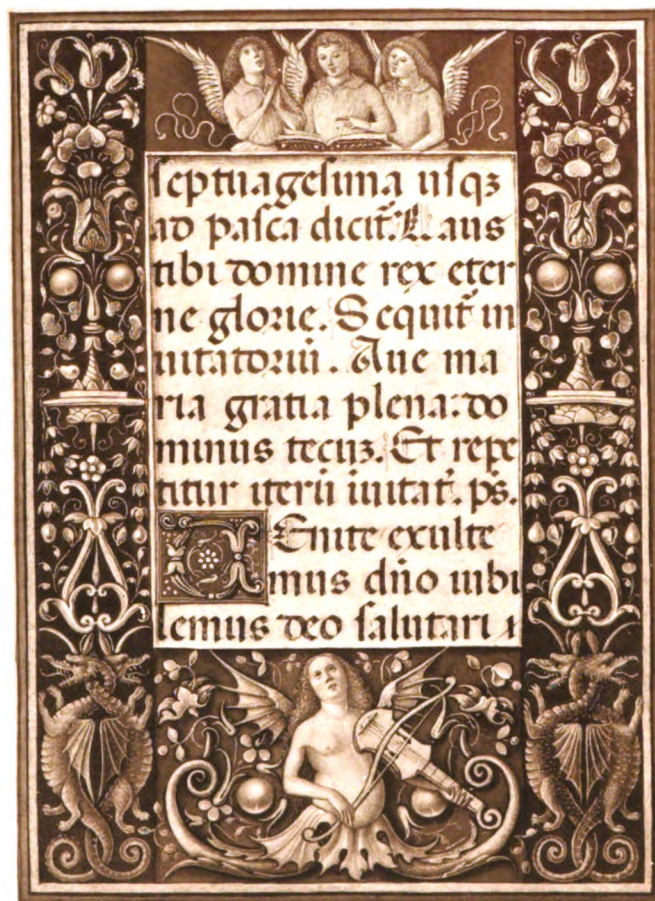 septuagesima usqꝫ
ad pasca dicit̄. Laus
tibi domine rex eter
ne glorie. Sequit̄ in
uitatoriū. Aue ma
ria gratia plena: do
minus tecuꝫ. Et repe
titur iterū inuitat̄. p̄s.
Venite exulte
mus dn̄o iubi
lemus deo salutari